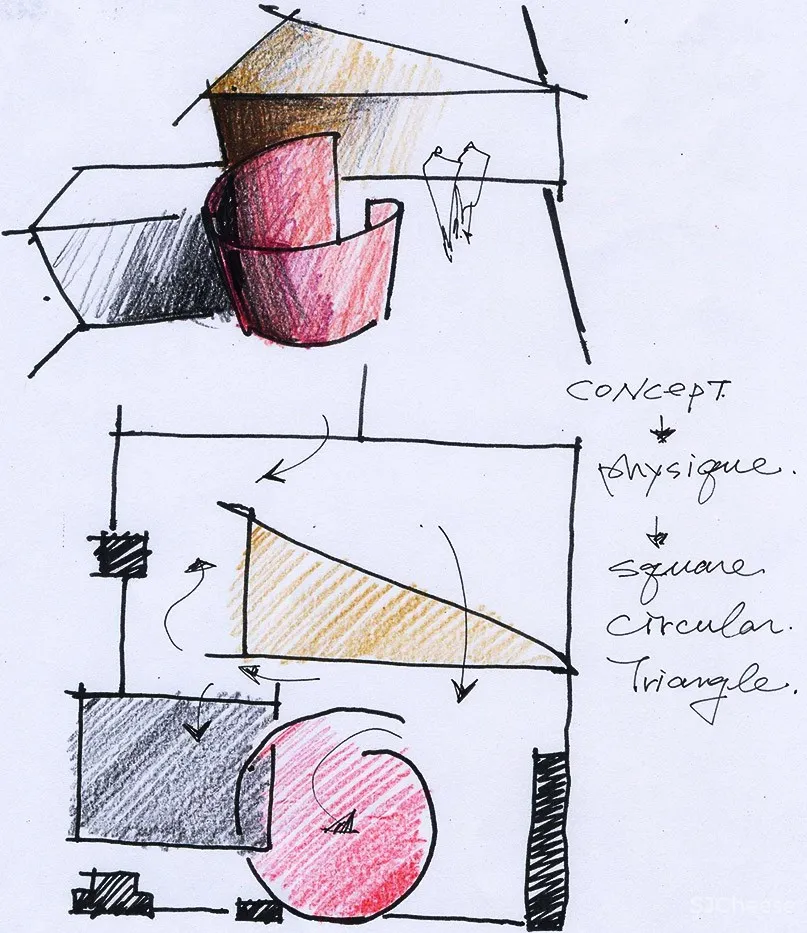 CONCEPT.
physique.
square.
circular.
Triangle.
SJCheese